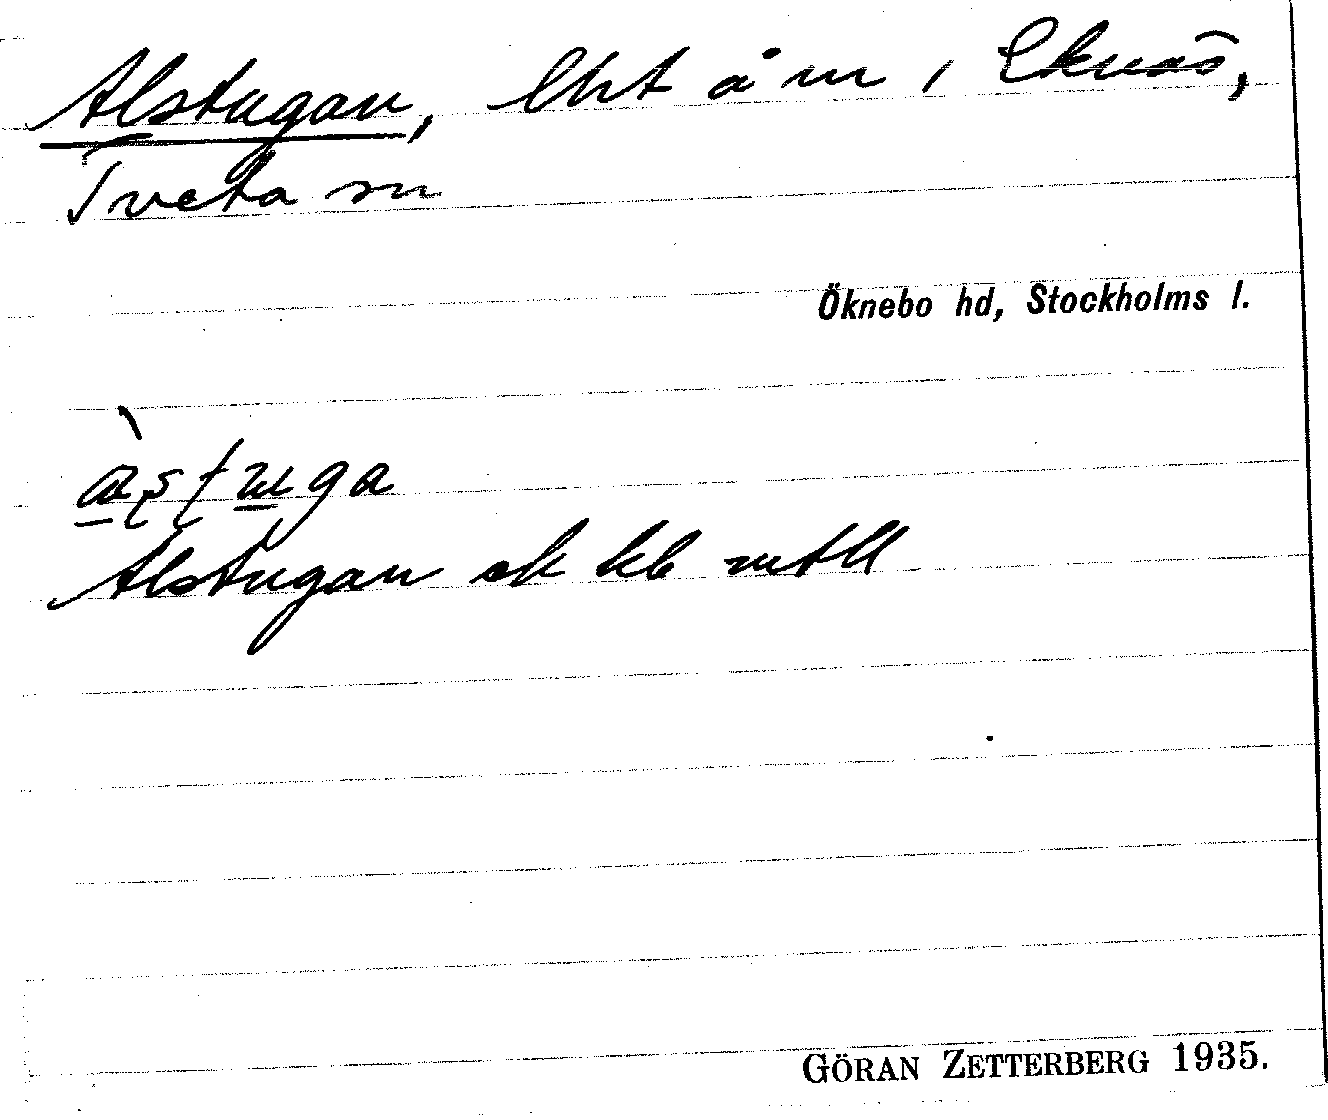 Alstugan, lht å m i Eknäs,
Tveta sn
Öknebo hd, Stockholms l.
Alstugan ek kb mtll
GÖRAN ZETTERBERG 1935.